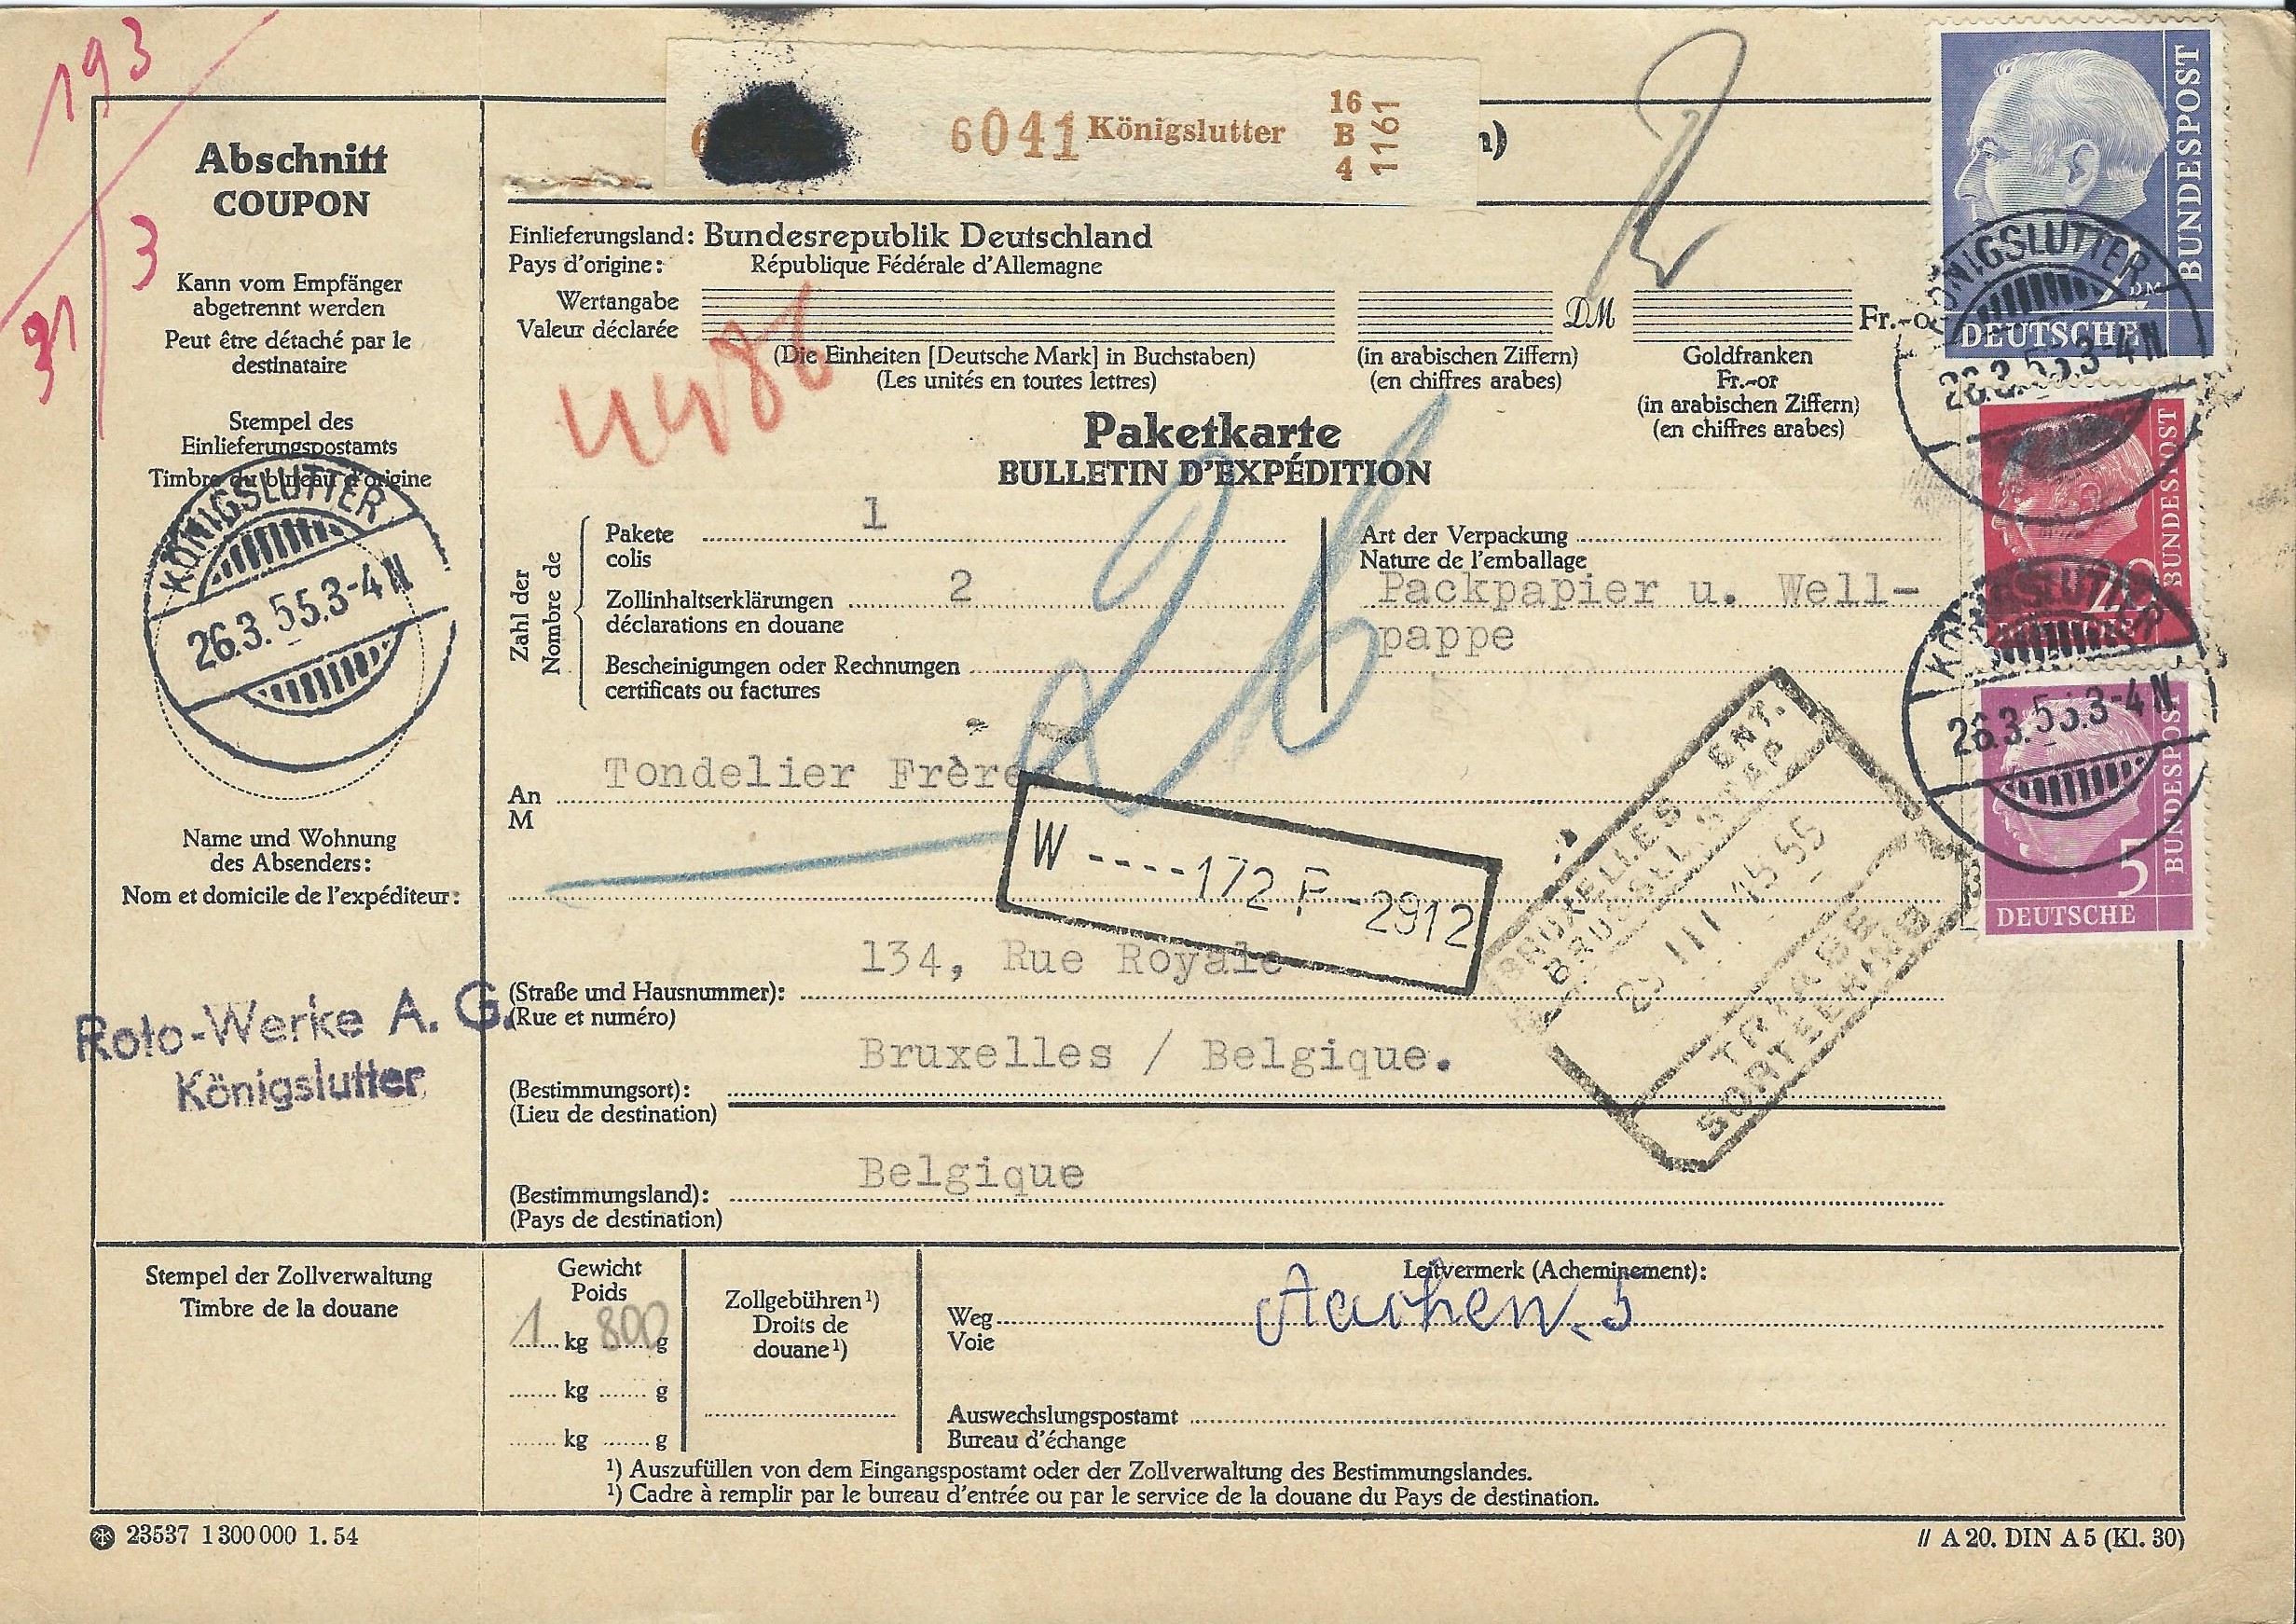 193
3
31
6041 Königslutter
16
B
4
1161
2
Abschnitt
COUPON
Kann vom Empfänger
abgetrennt werden
Peut être détaché par le
destinataire
Stempel des
Einlieferungspostamts
Timbre du bureau d'origine
KÖNIGSLUTTER
26.3.55.3-4N
Name und Wohnung
des Absenders:
Nom et domicile de l'expéditeur:
Roto-Werke A. G.
Königslutter
Einlieferungsland: Bundesrepublik Deutschland
Pays d'origine: République Fédérale d'Allemagne
Wertangabe
Valeur déclarée
DM
Fr.-o
(Die Einheiten [Deutsche Mark] in Buchstaben)
(Les unités en toutes lettres)
(in arabischen Ziffern)
(en chiffres arabes)
Goldfranken
Fr.-or
(in arabischen Ziffern)
(en chiffres arabes)
4486
Paketkarte
BULLETIN D'EXPÉDITION
26
Zahl der
Nombre de
Pakete 1
colis
Zollinhaltserklärungen 2
déclarations en douane
Bescheinigungen oder Rechnungen
certificats ou factures
Art der Verpackung
Nature de l'emballage
Packpapier u. Well-
pappe
An Tondelier Frères
M
W ----172 F -2912
BRUXELLES ENT.
BRUSSEL STAP
29 III 1955
TRIAGE
SORTEERING
134, Rue Royale
(Straße und Hausnummer):
(Rue et numéro)
Bruxelles / Belgique.
(Bestimmungsort):
(Lieu de destination)
Belgique
(Bestimmungsland):
(Pays de destination)
BUNDESPOST
2 DM
DEUTSCHE
KÖNIGSLUTTER
26.3.55.3-4N
BUNDESPOST
20
KÖNIGSLUTTER
26.3.55.3-4N
BUNDESPOST
5
DEUTSCHE
Stempel der Zollverwaltung
Timbre de la douane
Gewicht
Poids
1 kg 800 g
kg g
kg g
Zollgebühren ¹)
Droits de
douane ¹)
Leitvermerk (Acheminement):
Weg Aachen 5
Voie
Auswechslungspostamt
Bureau d'échange
¹) Auszufüllen von dem Eingangspostamt oder der Zollverwaltung des Bestimmungslandes.
¹) Cadre à remplir par le bureau d'entrée ou par le service de la douane du Pays de destination.
23537 1 300 000 1. 54
// A 20. DIN A 5 (Kl. 30)